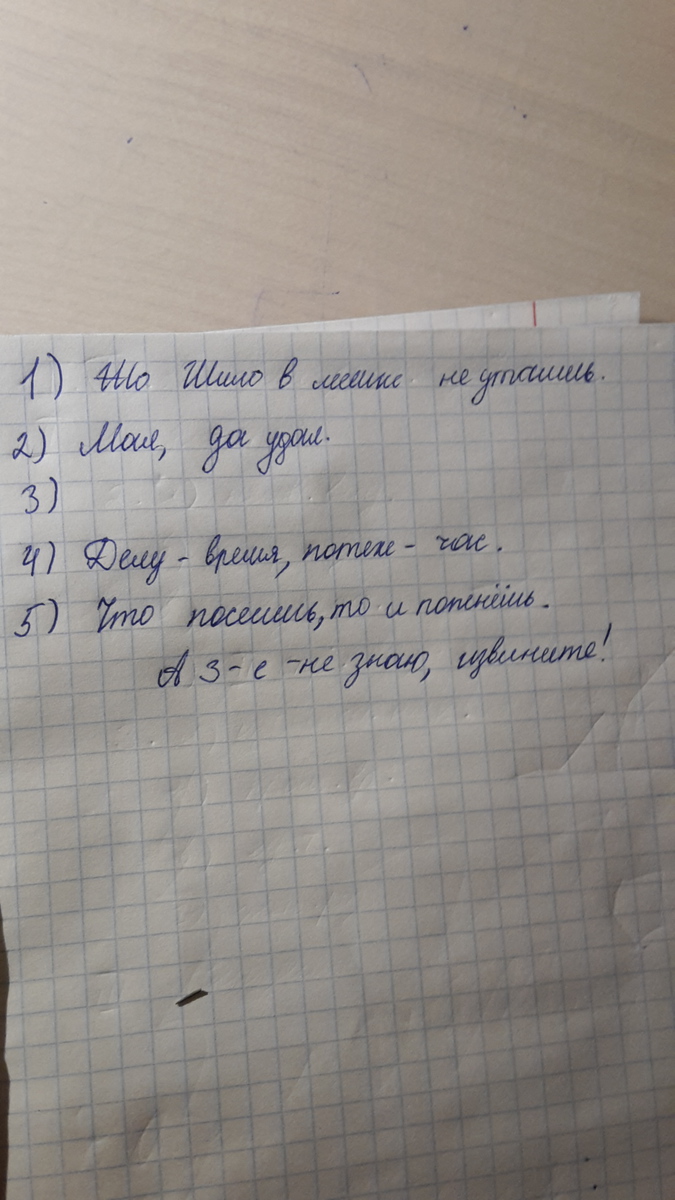 1) Шо Шило в мешке не утаишь.
2) Мал, да удал.
3)
4) Делу - время, потехе - час.
5) Что посеешь, то и пожнёшь.
А 3-е - не знаю, извините!